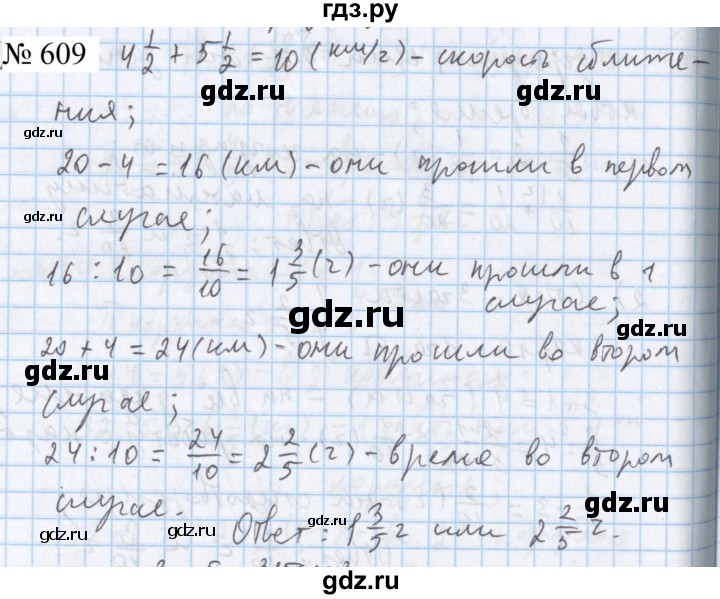 гдз.ру
№ 609 4 1/2 + 5 1/2 = 10 (км/г) - скорость сближе-
gdz.ru gdz.ru
ния;
gdz.ru
20 - 4 = 16 (км) - они прошли в первом
gdz.ru gdz.ru
случае;
16 : 10 = 16/10 = 1 3/5 (г) - они прошли в 1
gdz.ru
случае;
gdz.ru gdz.ru
20 + 4 = 24 (км) - они прошли во втором
gdz.ru gdz.ru
случае;
24 : 10 = 24/10 = 2 2/5 (г) - время во втором
gdz.ru
случае.
Ответ: 1 3/5 г или 2 2/5 г.
gdz.ru gdz.ru gdz.ru
gdz.ru